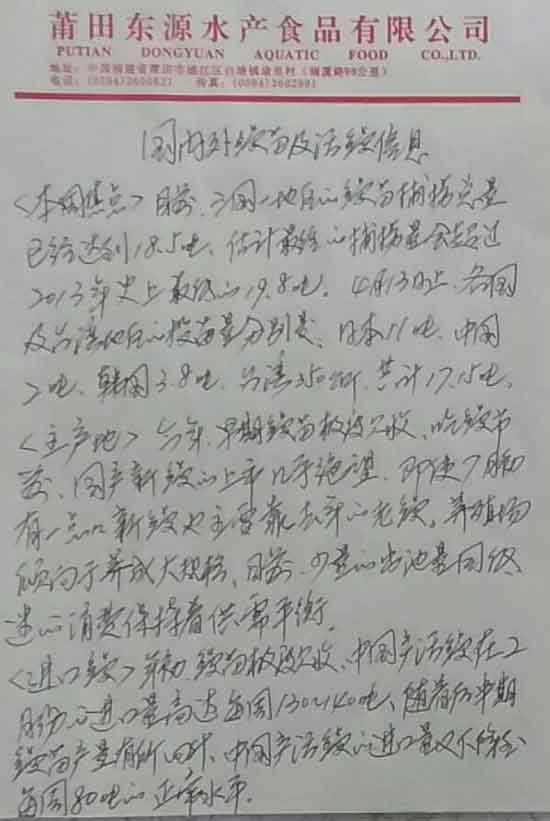 莆田东源水产食品有限公司
PUTIAN DONGYUAN AQUATIC FOOD CO.,LTD.
地址:中国福建省莆田市涵江区白塘镇
电话:(0594) 传真:(0594)
国内外鳗苗及活鳗信息
<本周焦点> 目前、三国一地区的鳗苗捕捞总量
已经达到18.5吨、估计最终的捕捞量会超过
2013年史上最低的19.8吨。4月13日止、各国
及台湾地区的投苗量分别是、日本11吨、中国
2吨、韩国3.8吨、台湾350公斤、共计17.15吨。
<主产地> 今年、早期鳗苗极度欠收、吃鳗节
前、国产新鳗的上市几乎绝望、即使7月初
有一点点新鳗也主要靠去年的老鳗。养殖场
倾向于养成大规格、目前、少量的出池量同低
迷的消费保持着供需平衡。
<进口鳗> 年初鳗苗极度欠收、中国产活鳗在2
月份的进口量高达每周130~140吨、随着后半期
鳗苗产量有所回升、中国产活鳗的进口量又下降至
每周80吨的正常水平。